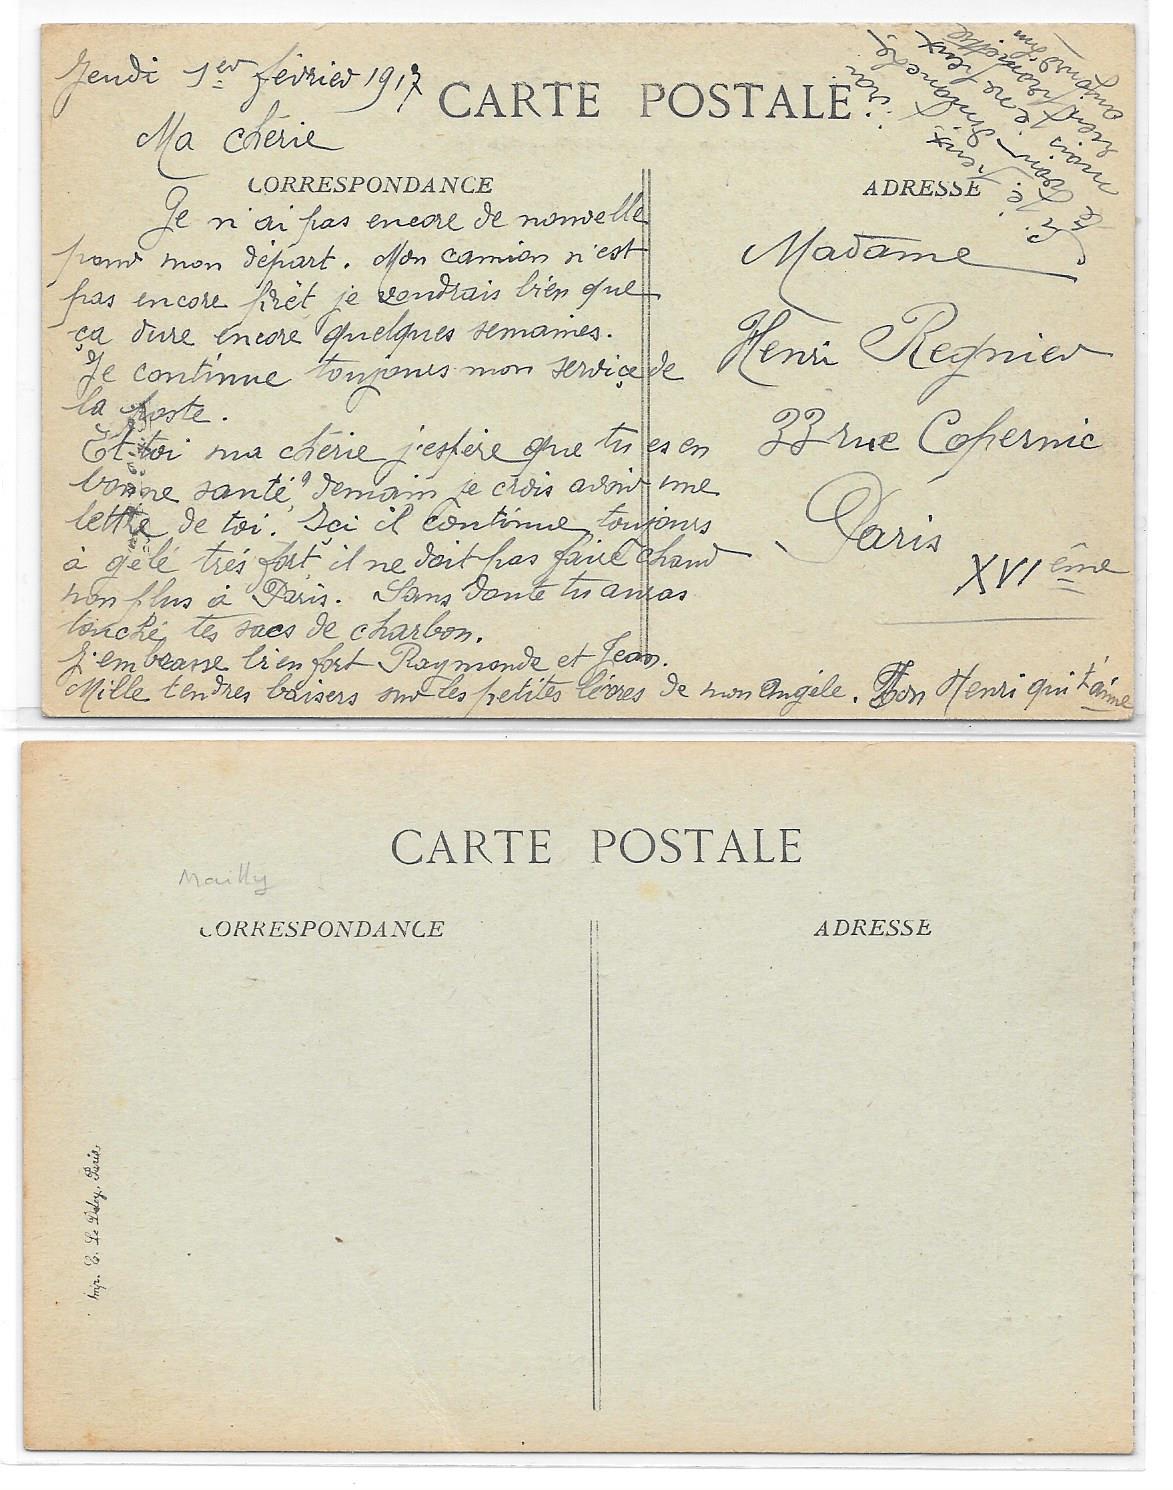 Jeudi 1er février 1917
CARTE POSTALE
Ma chérie
CORRESPONDANCE
ADRESSE
Je n'ai pas encore de nouvelle
pour mon départ. Mon camion n'est
pas encore prêt, je voudrais bien que
ça dure encore quelques semaines.
Je continue toujours mon service de
la poste.
Et toi ma chérie j'espère que tu es en
bonne santé, demain je crois avoir une
lettre de toi. Ici il continue toujours
à gêlé très fort, il ne doit pas faire chaud
non plus à Paris. Sans doute tu auras
touché tes sacs de charbon.
J'embrasse bien fort Raymonde et Jean.
Mille tendres baisers sur les petites lèvres de mon Angèle. Ton Henri qui t'aime
Madame
Henri Regnier
33 rue Copernic
Paris
XVI ème
CARTE POSTALE
Mailly
CORRESPONDANCE
ADRESSE
Imp. E. Le Deley, Paris